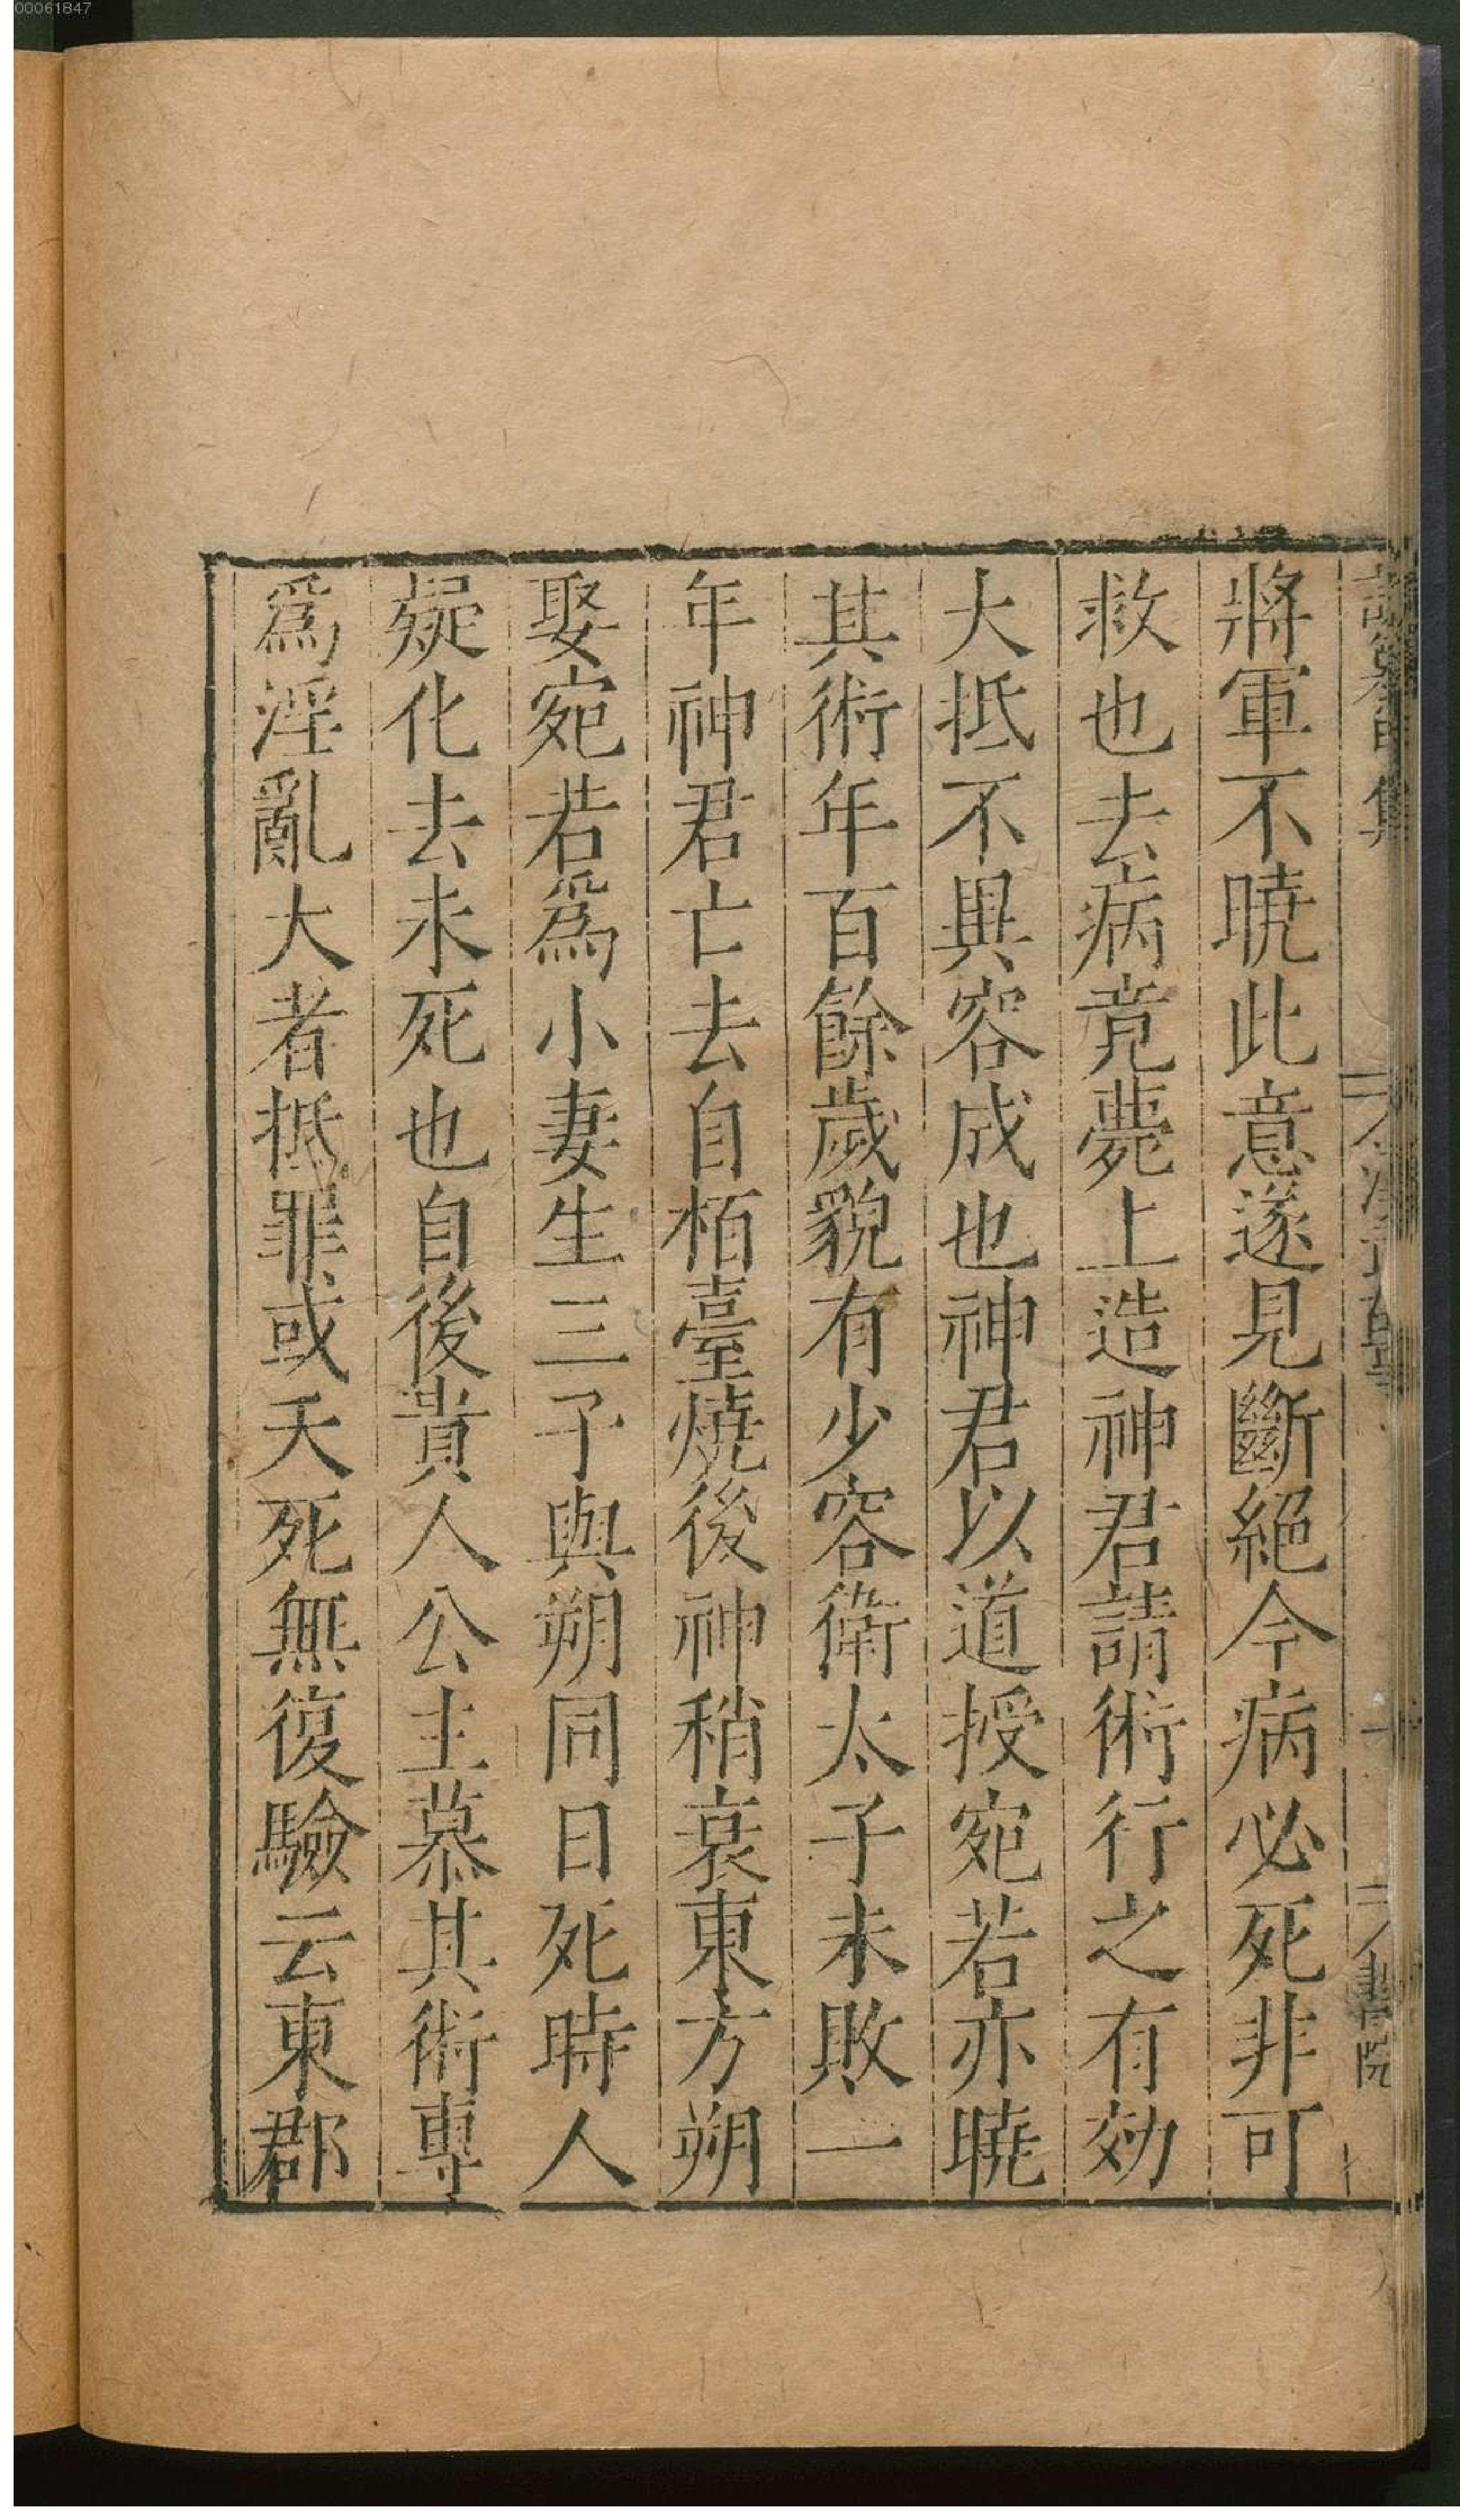 00061847
將軍不曉此意遂見斷絕今病必死非可
救也去病竟薨上造神君請術行之有効
大抵不異容成也神君以道授宛若亦曉
其術年百餘歲貌有少容衛太子未敗一
年神君亡去自栢臺燒後神稍衰東方朔
娶宛若爲小妻生三子與朔同日死時人
疑化去未死也自後貴人公主慕其術專
爲淫亂大者抵罪或夭死無復驗云東郡